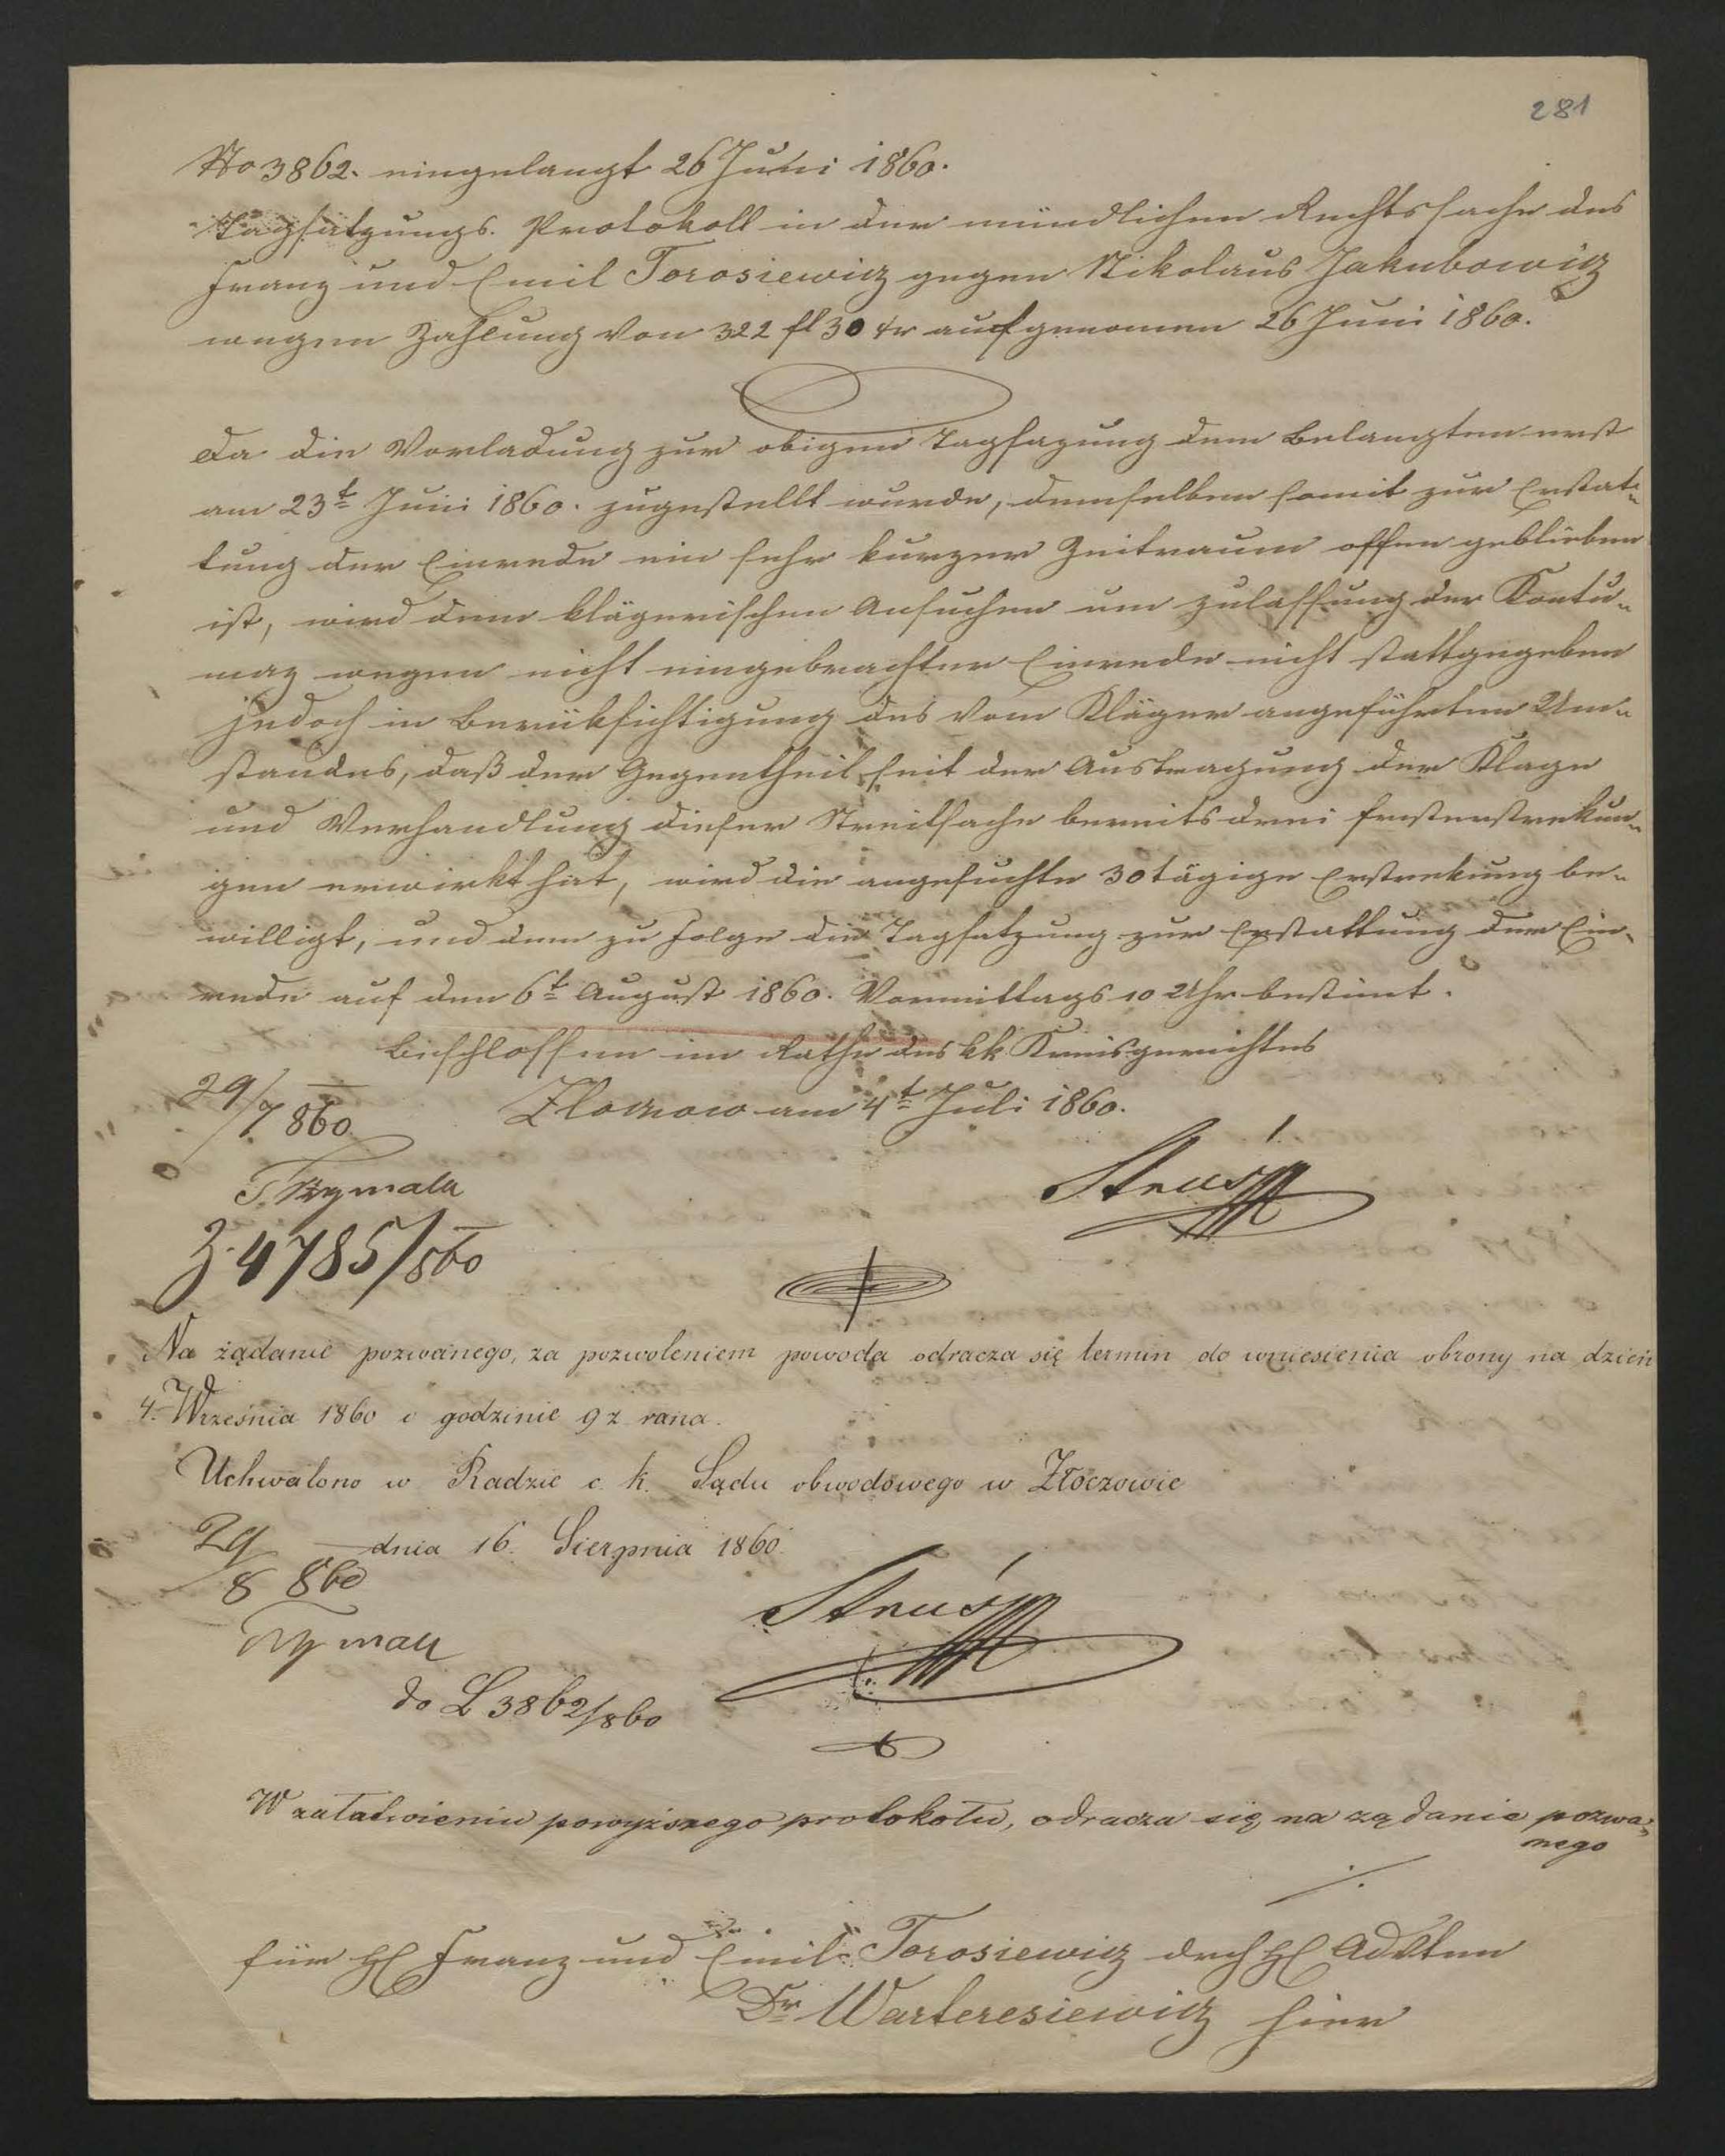 281
No 3862. eingelangt 26 Juni 1860.
Tagsatzungs. Protokoll in der mündlichen Rechtssache des
Franz und Emil Torosiewicz gegen Nikolaus Jakubowicz
wegen Zahlung von 322 fl 30 kr aufgenomen 26 Juni 1860.
Da die Vorladung zur obigen Tagsazung dem Belangten erst
am 23t Juni 1860. zugestellt wurde, demselben somit zur Erstat-
tung der Einrede ein sehr kurzer Zeitraum offen geblieben
ist, wird dem klägerischen Ansuchen um Zulassung der Kontu-
maz wegen nicht eingebrachter Einrede nicht stattgegeben
jedoch in Berüksichtigung des vom Kläger angeführten Um-
standes, daß der Gegentheil seit der Austragung der Klage
und Verhandlung dieser Streitsache bereits drei Fristerstrekun-
gen erwirkt hat, wird die angesuchte 30tägige Erstrekung be-
willigt, und dem zu Folge die Tagsatzung zur Erstattung der Ein-
rede auf den 6t August 1860. Vormittags 10 Uhr bestimt.
Beschlossen im Rathe des kk Kreisgerichtes
Zloczow am 4t Juli 1860.
29/7 860
Struś
Z. 4785/860
Na żądanie pozwanego, za pozwoleniem powoda odracza się termin do wniesienia obrony na dzień
4. Września 1860 o godzinie 9 z rana.
Uchwalono w Radzie c. k. Sądu obwodowego w Złoczowie
dnia 16. Sierpnia 1860.
29/8 860
Struś
do L 3862/860
W załatwieniu powyższego protokołu, odracza się na żądanie pozwa-
nego
./.
für H Franz und Emil Torosiewicz drch H Advten
Dr Warteresiewicz hier